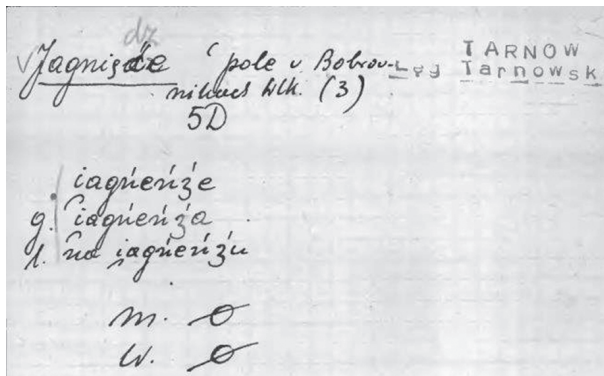 dz
Jagnięcie 'pole v Bobrov-
nikach Wlk. (3)
5D
TARNÓW
Łęg Tarnowsk
i̯agńeńʒ́e
g. i̯agńeńʒ́a
l. na i̯agńeńʒ́u
m. ø
w. ø